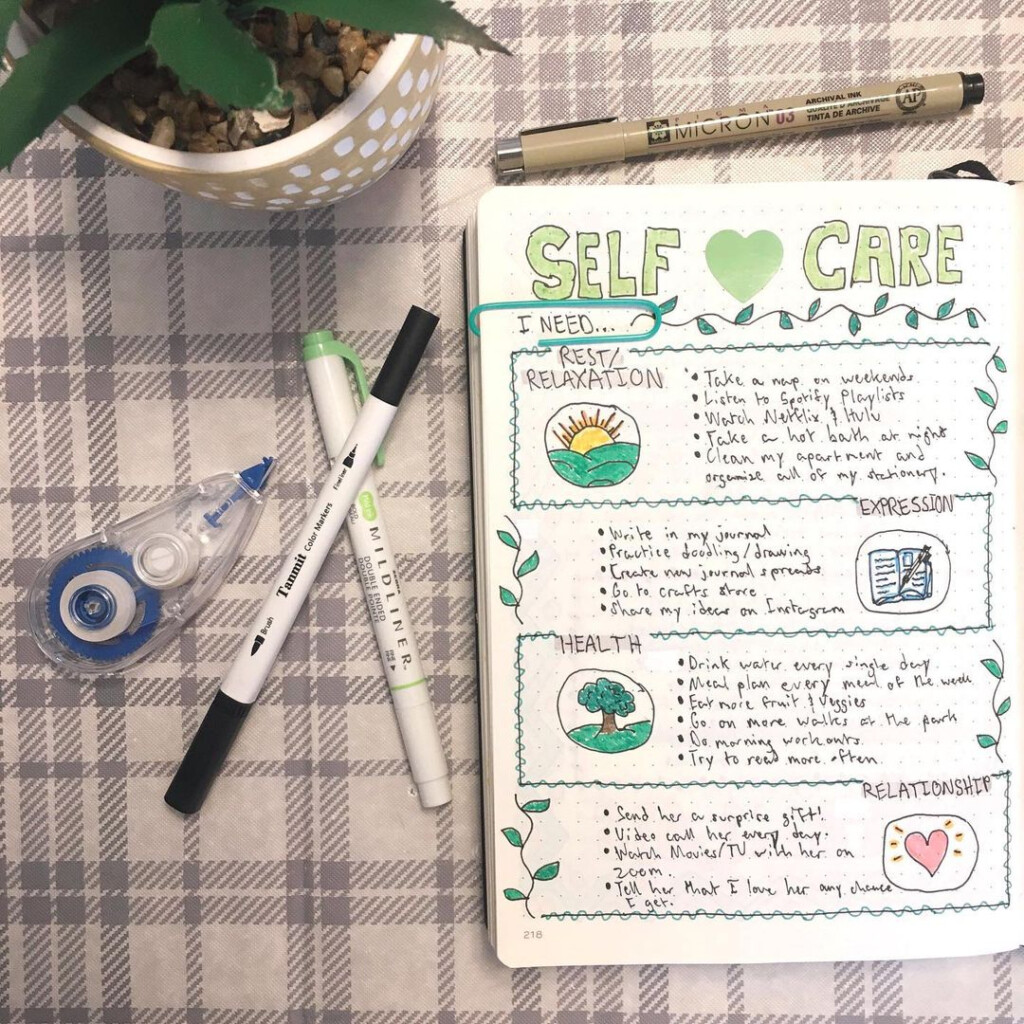 PIGMA
MICRON 03
ARCHIVAL INK
QUALITÉ D'ARCHIVAGE
TINTA DE ARCHIVE
AP
SELF CARE
I NEED...
REST/
RELAXATION
• Take a nap on weekends
• Listen to Spotify Playlists
• Watch Netflix & Hulu
• Take a hot bath at night
• Clean my apartment and
organize all of my stationery.
EXPRESSION
• Write in my journal
• Practice doodling/drawing
• Create new journal spreads
• Go to crafts store
• Share my ideas on Instagram
HEALTH
• Drink water every single day
• Meal plan every meal of the week
• Eat more fruit & veggies
• Go on more walks at the park
• Do morning workouts.
• Try to read more often.
RELATIONSHIP
• Send her a surprise gift!
• Video call her every day.
• Watch Movies/TV with her on
zoom.
• Tell her that I love her any chance
I get.
218
Brush
Tanmit Color Markers
Fineliner
MILDLINER
DOUBLE ENDED
DOUBLE POINTE